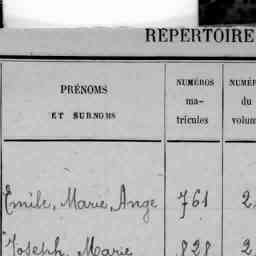 RÉPERTOIRE
PRÉNOMS
ET SURNOMS
NUMÉROS
ma-
tricules
NUMÉR
du
volum
Émile, Marie, Ange 761 2
Joseph, Marie 828 2